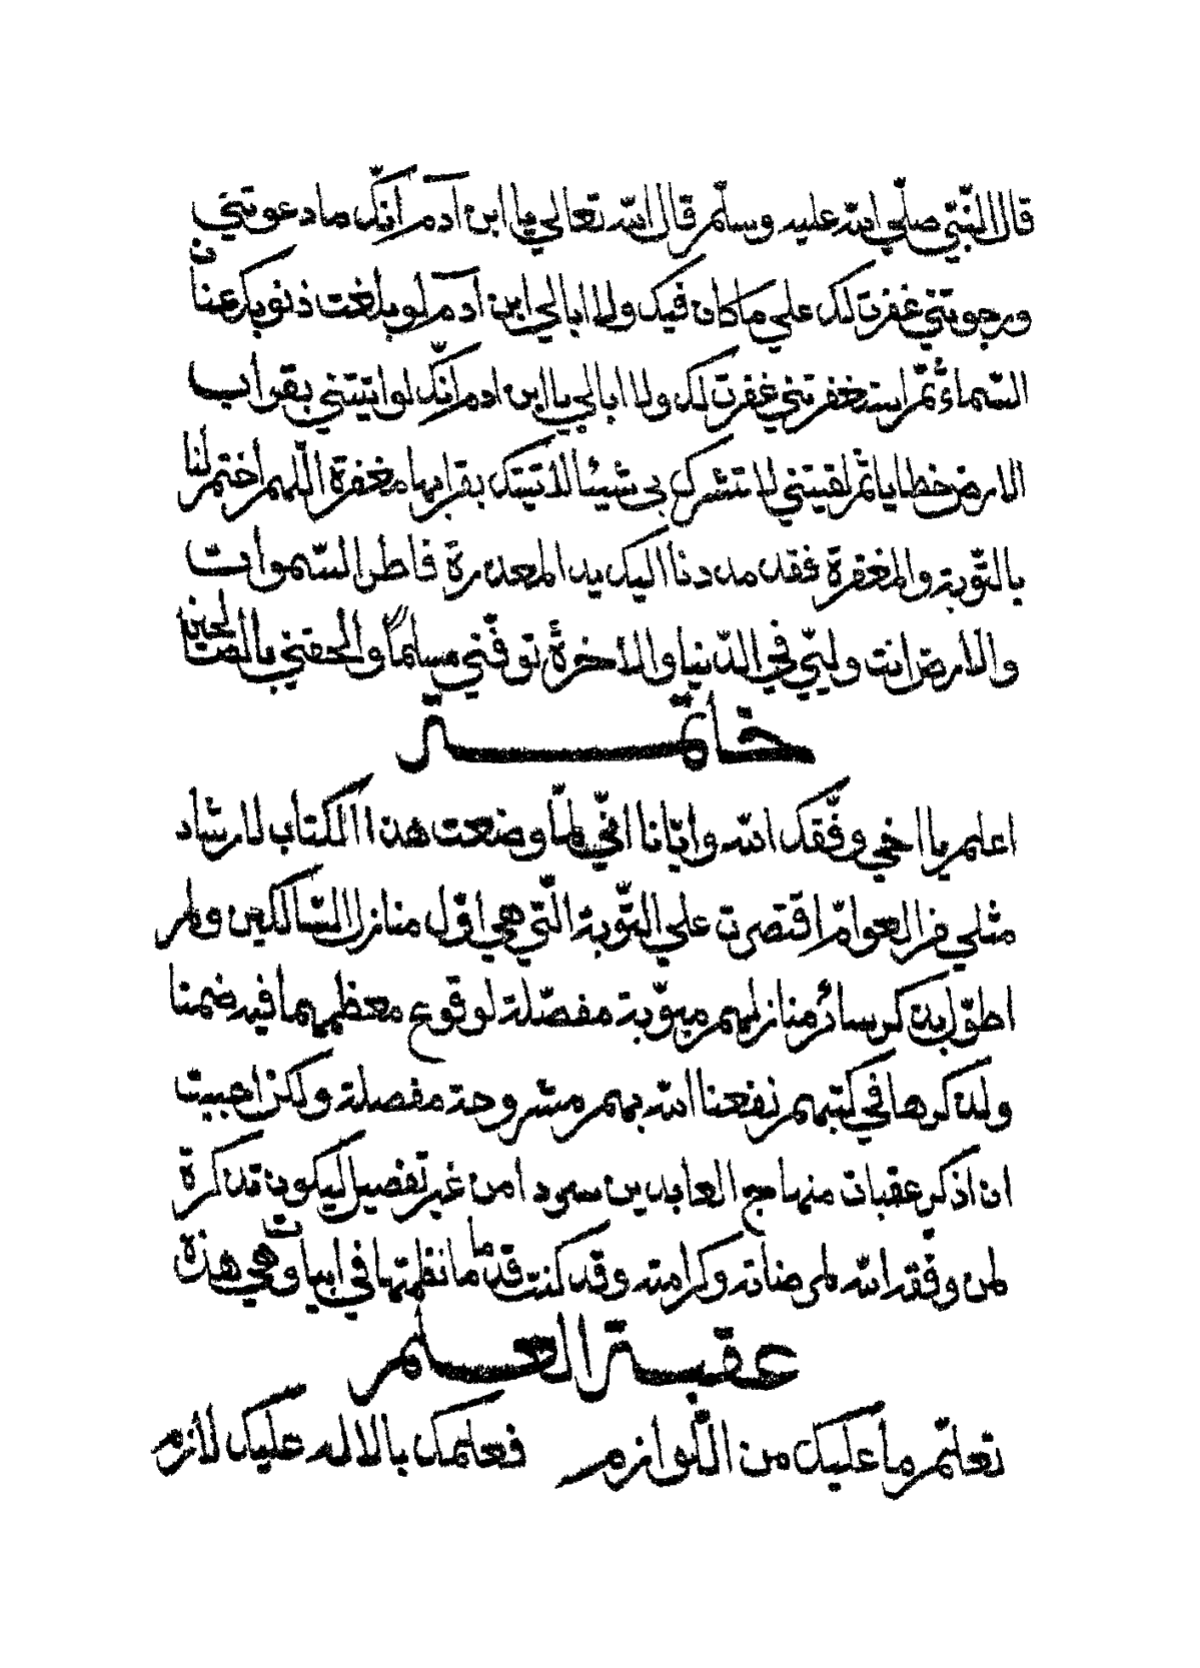 قال النّبيّ صلّي اللّه عليه وسلّم قال اللّه تعالي يا ابن آدم انّك ما دعوتني
ورجوتني غفرت لك علي ما كان فيك ولا ابالي ابن آدم لو بلغت ذنوبك عنان
السّماء ثمّ استغفرتني غفرت لك ولا ابالي يا ابن ادم انّك لو اتيتني بقراب
الارض خطايا ثم لقيتني لا تشرك بي شيئا لأتيتك بقرابها مغفرة اللّهم اختم لنا
بالتّوبة والمغفرة فقد مددنا اليك يد المعذرة فاطر السّموات
والارض انت وليّي في الدّنيا والاخرة توفّني مسلمًا والحقني بالصّالحين
خاتمة
اعلم يا اخي وفّقك اللّه وأيّانا انّي لمّا وضعت هذا الكتاب لارشاد
مثلي من العوامّ اقتصرت علي التّوبة الّتي هي اوّل منازل السّالكين ولم
اطوّل بذكر سائر منازلهم مبوّبة مفصّلة لوقوع معظمها فيه ضمنا
ولذكرها في كتبهم نفعنا اللّه بهم مشروحة مفصلة ولكن احببت
ان اذكر عقبات منهاج العابدين سردا من غير تفصيل ليكون تذكرة
لمن وفّقه اللّه لمرضاته وكرامته وقد كنت قدّما نظمتها في ابيات وهي هذه
عقبة العلم
تعلّم ما عليك من اللّوازم فعلمك بالاله عليك لازم